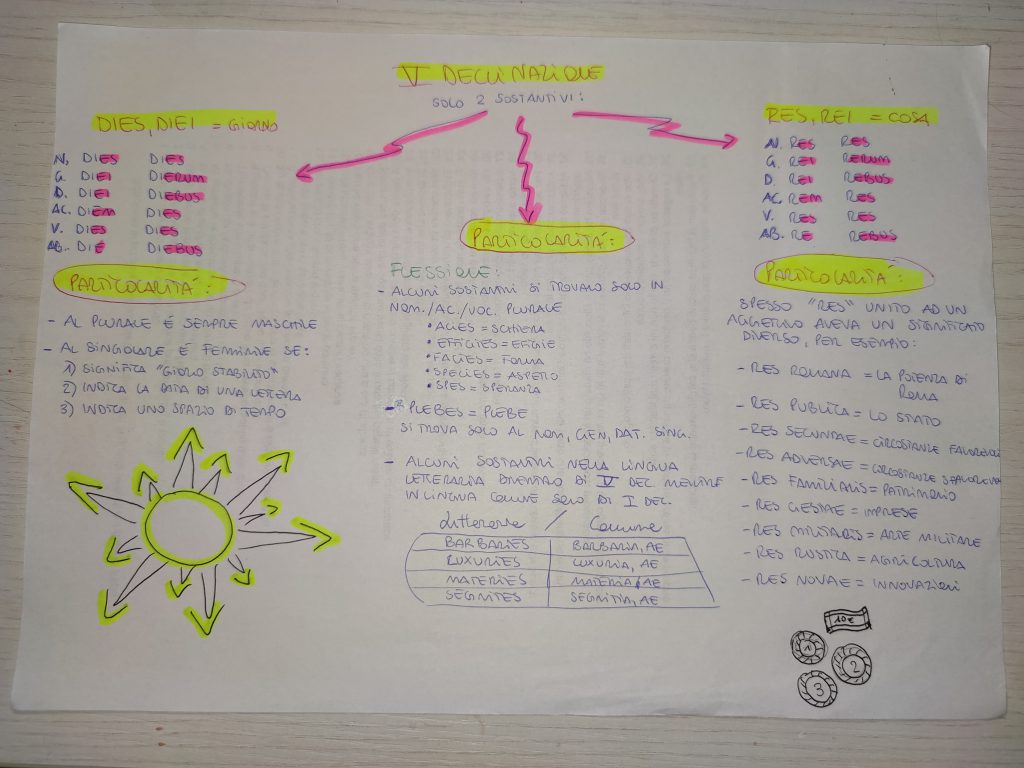 V DECLINAZIONE
SOLO 2 SOSTANTIVI:
DIES, DIEI = GIORNO
N. DIES DIES
G. DIEI DIERUM
D. DIEI DIEBUS
AC. DIEM DIES
V. DIES DIES
AB. DIE DIEBUS
PARTICOLARITÀ:
- AL PLURALE È SEMPRE MASCHILE
- AL SINGOLARE È FEMMINILE SE:
1) SIGNIFICA "GIORNO STABILITO"
2) INDICA LA DATA DI UNA LETTERA
3) INDICA UNO SPAZIO DI TEMPO
PARTICOLARITÀ:
FLESSIONE:
- ALCUNI SOSTANTIVI SI TROVANO SOLO IN
NOM./AC./VOC. PLURALE
• ACIES = SCHIERA
• EFFIGIES = EFFIGIE
• FACIES = FORMA
• SPECIES = ASPETTO
• SPES = SPERANZA
- PLEBES = PLEBE
SI TROVA SOLO AL NOM, GEN, DAT. SING.
- ALCUNI SOSTANTIVI NELLA LINGUA
LETTERARIA DIVENTANO DI V DEC. MENTRE
IN LINGUA COMUNE SONO DI I DEC.
Letterarie / Comune
BARBARIES BARBARIA, AE
LUXURIES LUXURIA, AE
MATERIES MATERIA, AE
SEGNITES SEGNITIA, AE
RES, REI = COSA
N. RES RES
G. REI RERUM
D. REI REBUS
AC. REM RES
V. RES RES
AB. RE REBUS
PARTICOLARITÀ:
SPESSO "RES" UNITO AD UN
AGGETTIVO AVEVA UN SIGNIFICATO
DIVERSO, PER ESEMPIO:
- RES ROMANA = LA POTENZA DI
ROMA
- RES PUBLICA = LO STATO
- RES SECUNDAE = CIRCOSTANZE FAVOREVOLI
- RES ADVERSAE = CIRCOSTANZE SFAVOREVOLI
- RES FAMILIARIS = PATRIMONIO
- RES GESTAE = IMPRESE
- RES MILITARIS = ARTE MILITARE
- RES RUSTICA = AGRICOLTURA
- RES NOVAE = INNOVAZIONI
10 €
1
2
3